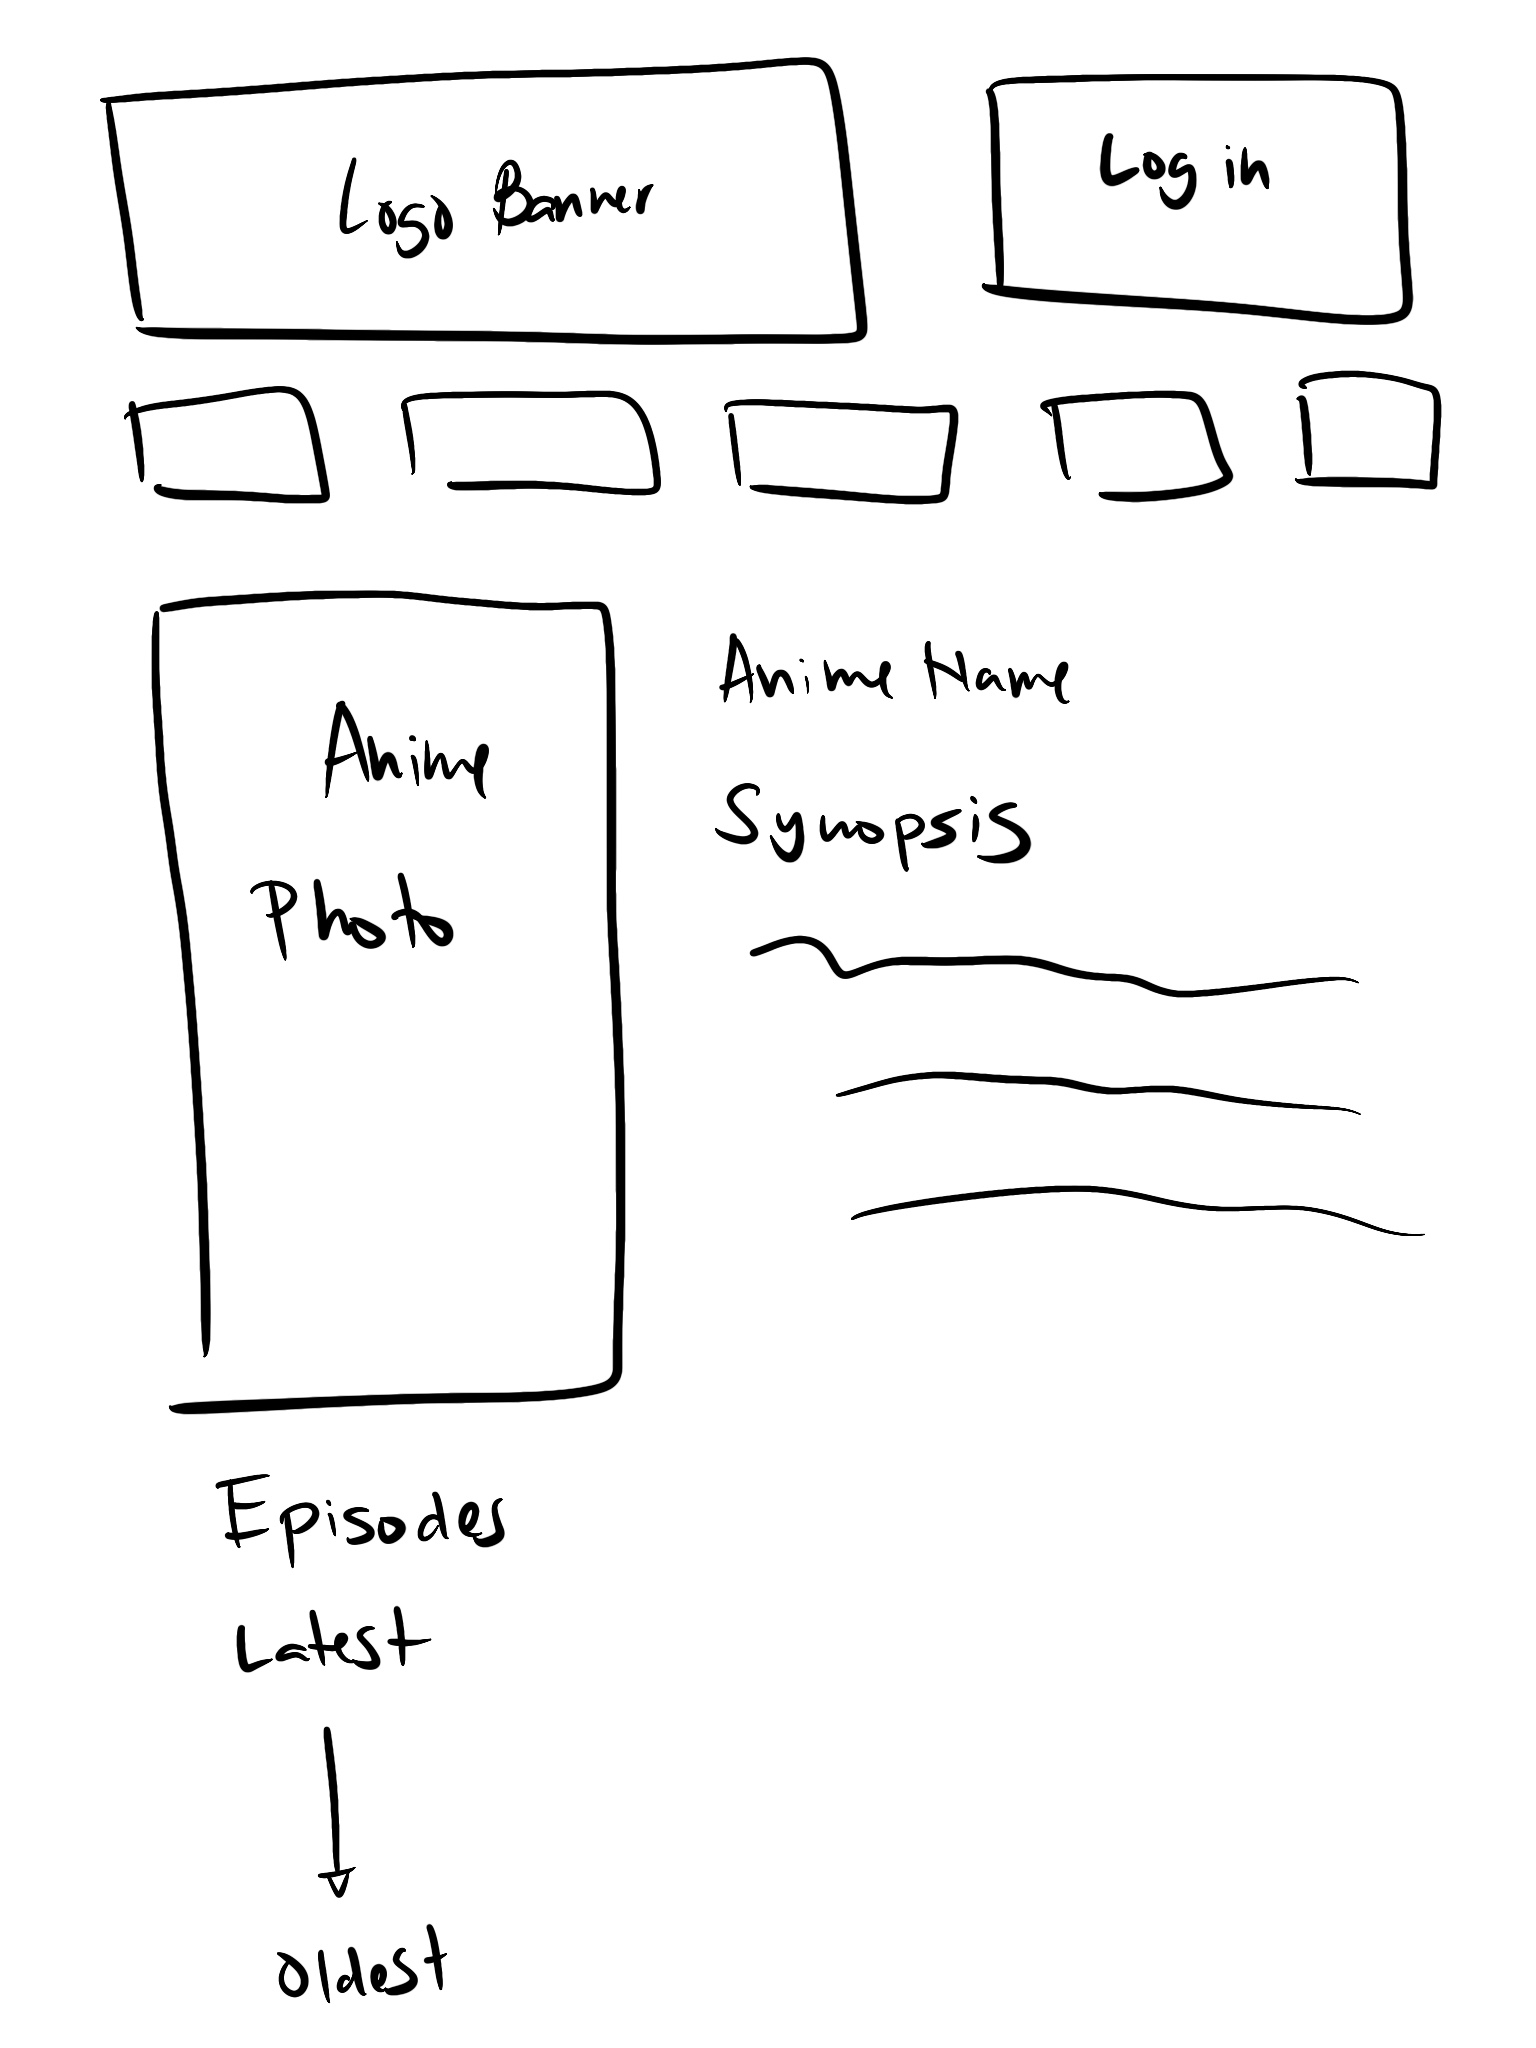 Logo Banner
Log in
Anime
Photo
Anime Name
Synopsis
Episodes
Latest
Oldest